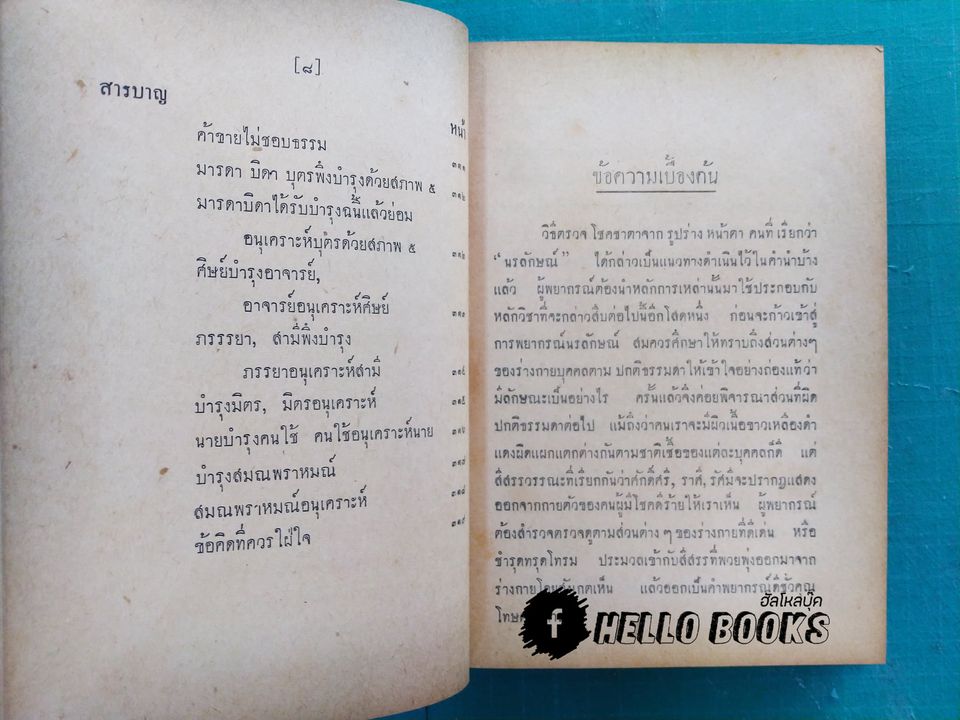 [๘]
สารบาญ
หน้า
ค้าขายไม่ชอบธรรม ๓๑๑
มารดา บิดา บุตรพึงบำรุงด้วยสภาพ ๕ ๓๑๒
มารดาบิดาได้รับบำรุงฉนี้แล้วย่อม
อนุเคราะห์บุตรด้วยสภาพ ๕ ๓๑๒
ศิษย์บำรุงอาจารย์,
อาจารย์อนุเคราะห์ศิษย์ ๓๑๓
ภรรรยา, สามีพึงบำรุง
ภรรยาอนุเคราะห์สามี
บำรุงมิตร, มิตรอนุเคราะห์
นายบำรุงคนใช้ คนใช้อนุเคราะห์นาย
บำรุงสมณพราหมณ์
สมณพราหมณ์อนุเคราะห์
ข้อคิดที่ควรใฝ่ใจ
ข้อความเบื้องต้น
วิธีตรวจ โชคชาตาจาก รูปร่าง หน้าตา คนที่ เรียกว่า
“นรลักษณ์” ได้กล่าวเป็นแนวทางดำเนินไว้ในคำนำบ้าง
แล้ว ผู้พยากรณ์ต้องนำหลักการเหล่านั้นมาใช้ประกอบกับ
หลักวิชาที่จะกล่าวสืบต่อไปนี้อีกโสดหนึ่ง ก่อนจะก้าวเข้าสู่
การพยากรณ์นรลักษณ์ สมควรศึกษาให้ทราบถึงส่วนต่างๆ
ของร่างกายบุคคลตาม ปกติธรรมดาให้เข้าใจอย่างถ่องแท้ว่า
มีลักษณะเป็นอย่างไร ครั้นแล้วจึงค่อยพิจารณาส่วนที่ผิด
ปกติธรรมดาต่อไป แม้ถึงว่าคนเราจะมีผิวเนื้อขาวเหลืองดำ
แดงผิดแผกแตกต่างกันตามชาติเชื้อของแต่ละบุคคลก็ดี แต่
สีสรรวรรณะที่เรียกกันว่าศักดิ์ศรี, ราศี, รัศมีจะปรากฏแสดง
ออกจากกายตัวของคนผู้มีโชคดีร้ายให้เราเห็น ผู้พยากรณ์
ต้องสำรวจตรวจดูตามส่วนต่าง ๆ ของร่างกายที่ดีเด่น หรือ
ชำรุดทรุดโทรม ประมวลเข้ากับสีสรรที่พวยพุ่งออกมาจาก
ร่างกายโดยสังเกตเห็น แล้วออกเป็นคำพยากรณ์ดีชั่วคุณ
โทษ
ฮัลโหลบุ๊ค
f HELLO BOOKS